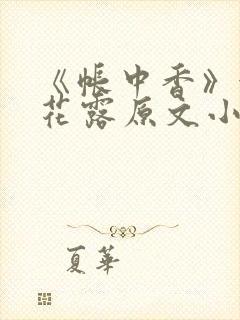 《帐中香》
花露原文小
夏華